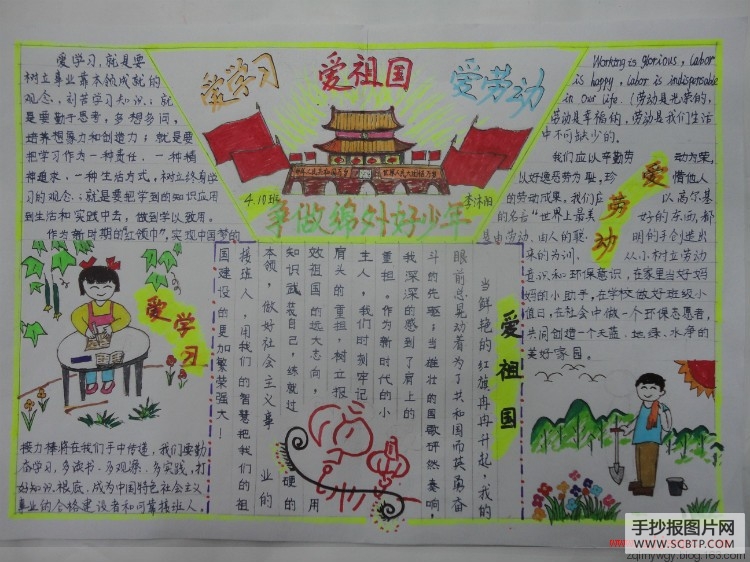 爱学习 爱祖国 爱劳动
4.10班
李沐阳
争做绵外好少年
爱学习,就是要
树立事业靠本领成就的
观念,刻苦学习知识;就
是要勤于思考,多想多问,
培养想象力和创造力;就是要
把学习作为一种责任、一种精
神追求、一种生活方式,树立终身学
习的观念;就是要把学到的知识应用
到生活和实践中去,做到学以致用。
作为新时期的“红领巾”,实现中国梦的
爱学习
接力棒将在我们手中传递,我们要勤
奋学习、多读书、多观源、多实践,打
好知识根底,成为中国特色社会主义
事业的合格建设者和可靠接班人。
爱祖国
当鲜艳的红旗冉冉升起,我的
眼前总晃动着为了共和国而英勇奋
斗的先驱;当雄壮的国歌砰然奏响,
我深深的感到了肩上的
重担。作为新时代的小
主人,我们时刻牢记
肩头的重担,树立报
效祖国的远大志向,用
知识武装自己,练就过硬的
本领,做好社会主义事业的
接班人,用我们的智慧把我们的祖
国建设的更加繁荣强大!
Working is glorious, labor
is happy, labor is indispensable
in Our life.(劳动是光荣的,
劳动是幸福的,劳动是我们生活
中不可缺少的。
我们应以辛勤劳动为荣,
以好逸恶劳为耻,珍惜他人
的劳动成果,我们应以高尔基
的名言“世界上最美好的东西,都
是由劳动、由人的聪明的手创造出
来的为训、从小树立劳动
意识和环保意识,在家里当好妈
妈的小助手,在学校做好班级小
值日,在社会中做一个环保志愿者,
共同创造一个天蓝、地绿、水净的
美好家园。
爱劳动
手抄报图片网
WWW.SCBTP.COM
zqlmywgy.blog.163.com